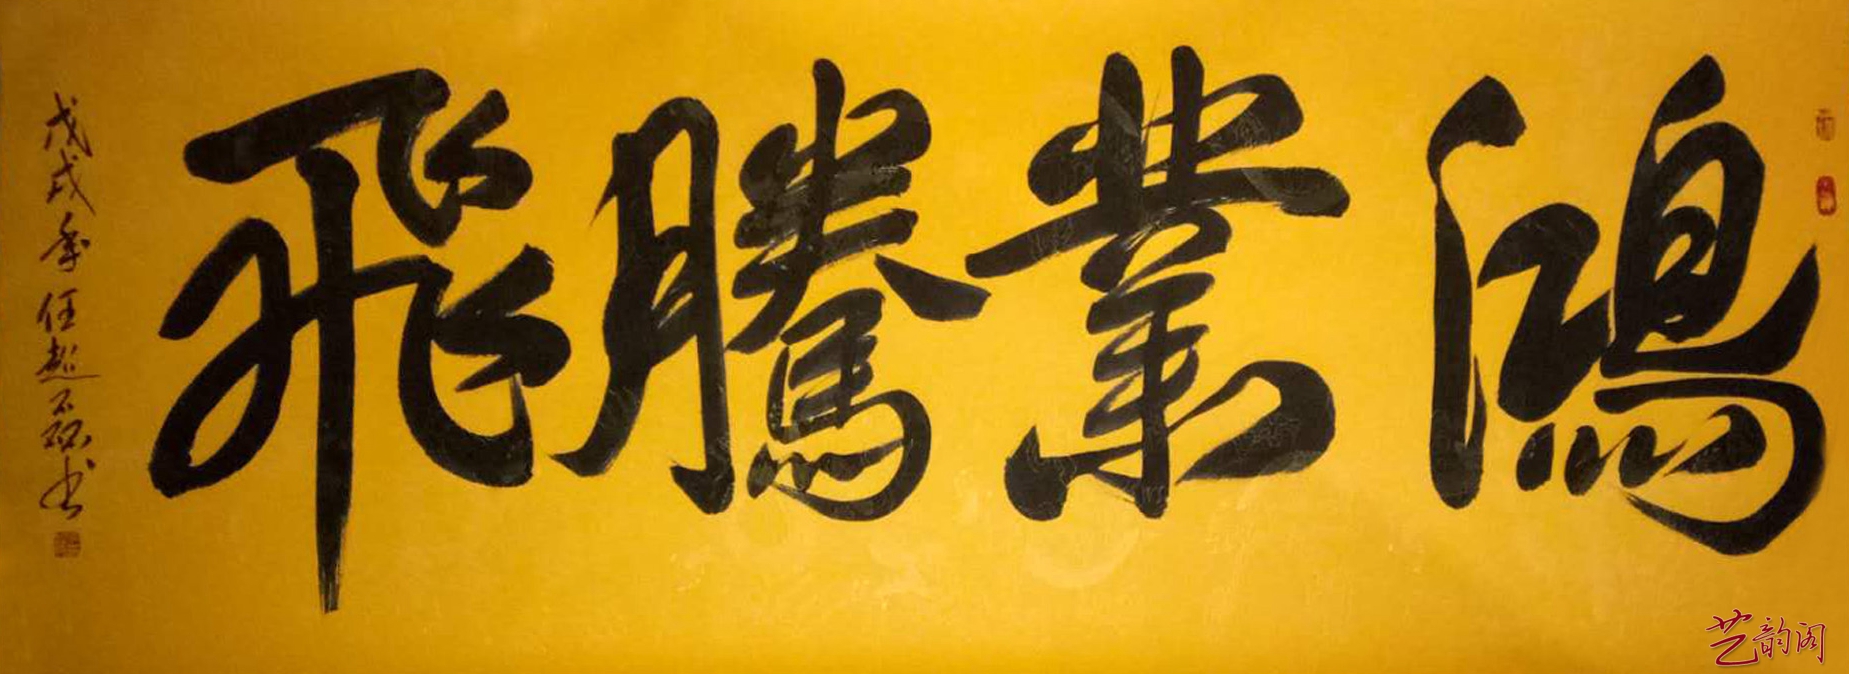 鴻業騰飛
戊戌年任超不硯書
艺韵阁